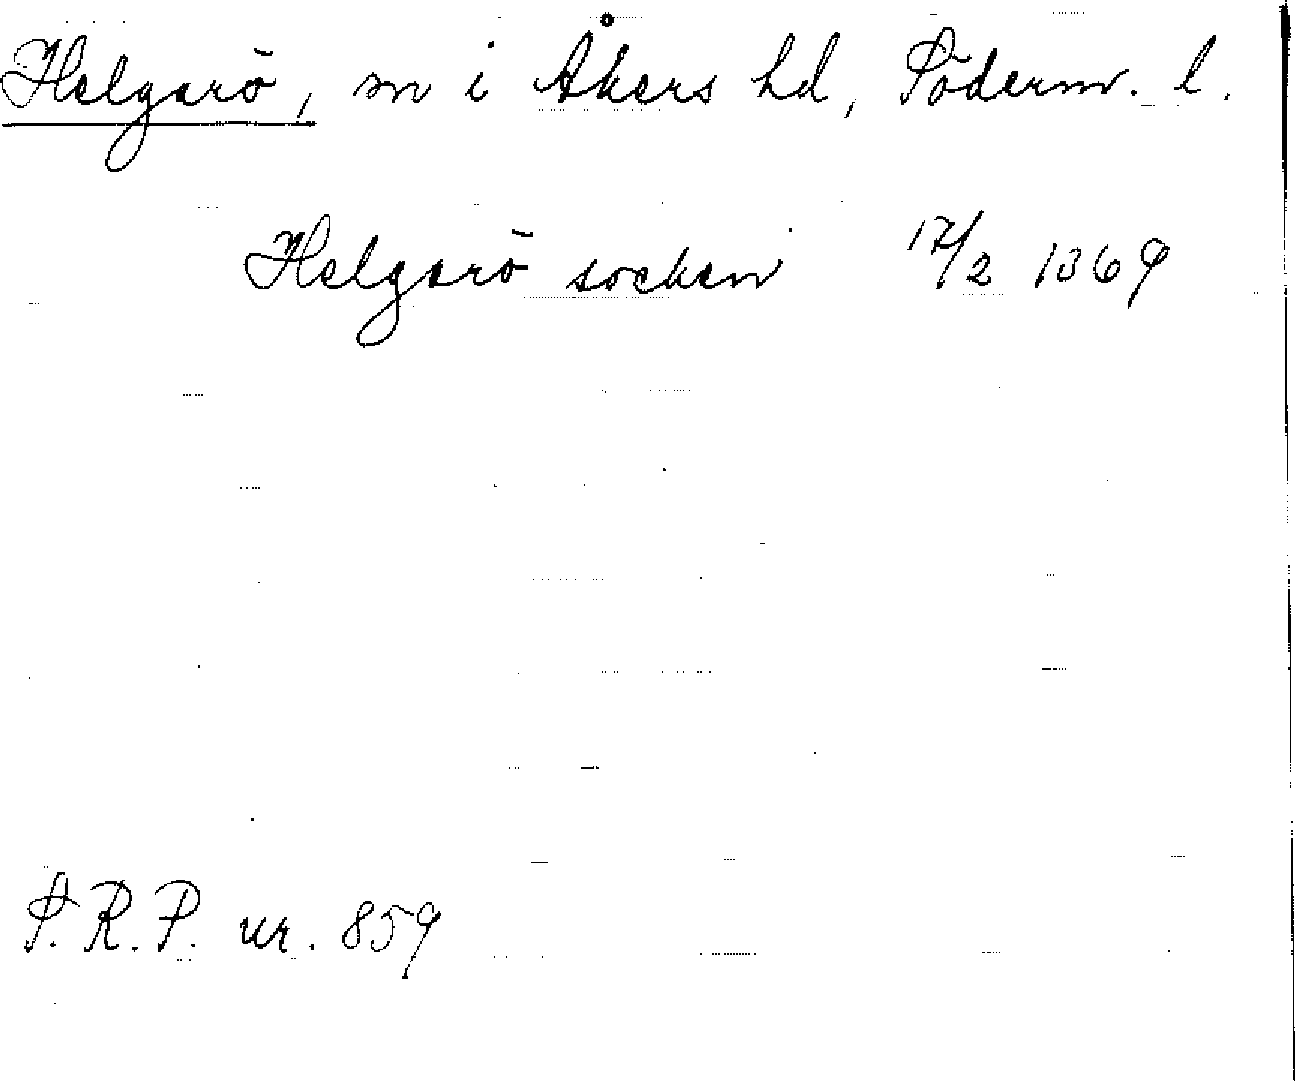 Helgarö, sn i Åkers hd, Söderm. l.
Helgarö socken 17/2 1369
S. R. P. nr. 859